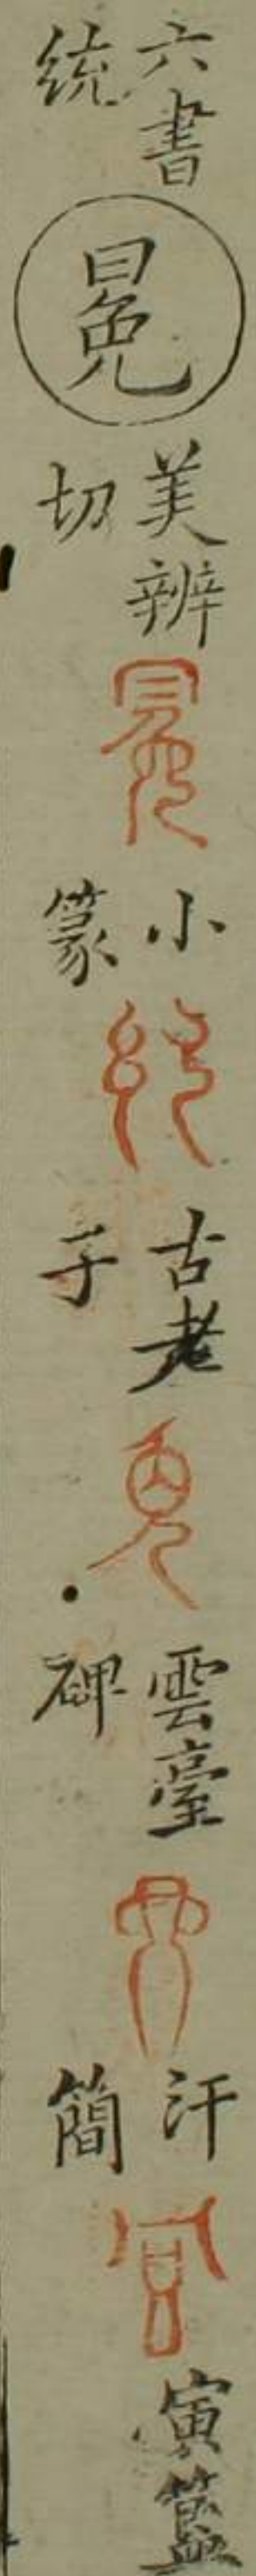 六書統
冕
美辨切
小篆
古老子
雲臺碑
汗簡
寅簋